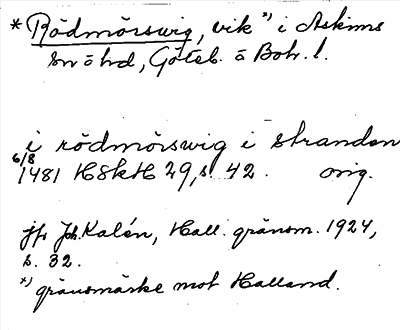 * Rödmörswig, vik *) i Askims
sn o hd, Göteb. o Boh. l.
i rödmörswig i stranden
6/8 1481 HSkH 29, s. 42. orig.
jfr Joh. Kalén, Hall. gränsm. 1924,
s. 32.
*) gränsmärke mot Halland.